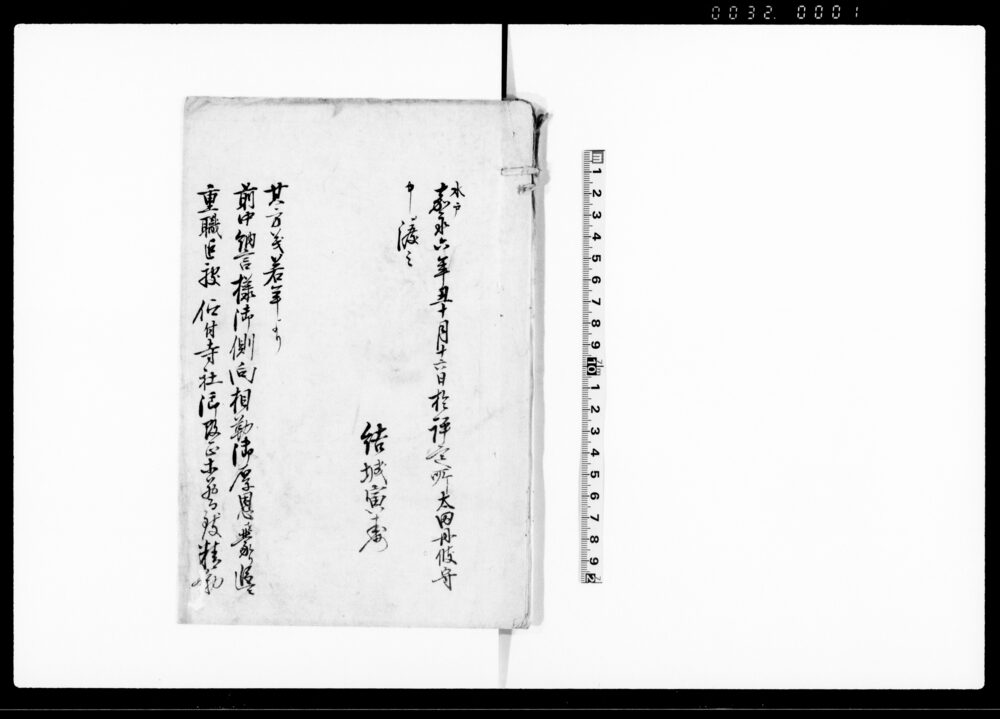 0032. 0001
水戸
嘉永六年丑十月十六日於評定所太田丹波守
申渡之
結城寅寿
其方義若年より
前中納言様御側向相勤御厚恩蒙
重職迄被仰付寺社御改正
m 1 2 3 4 5 6 7 8 9 10 1 2 3 4 5 6 7 8 9 2